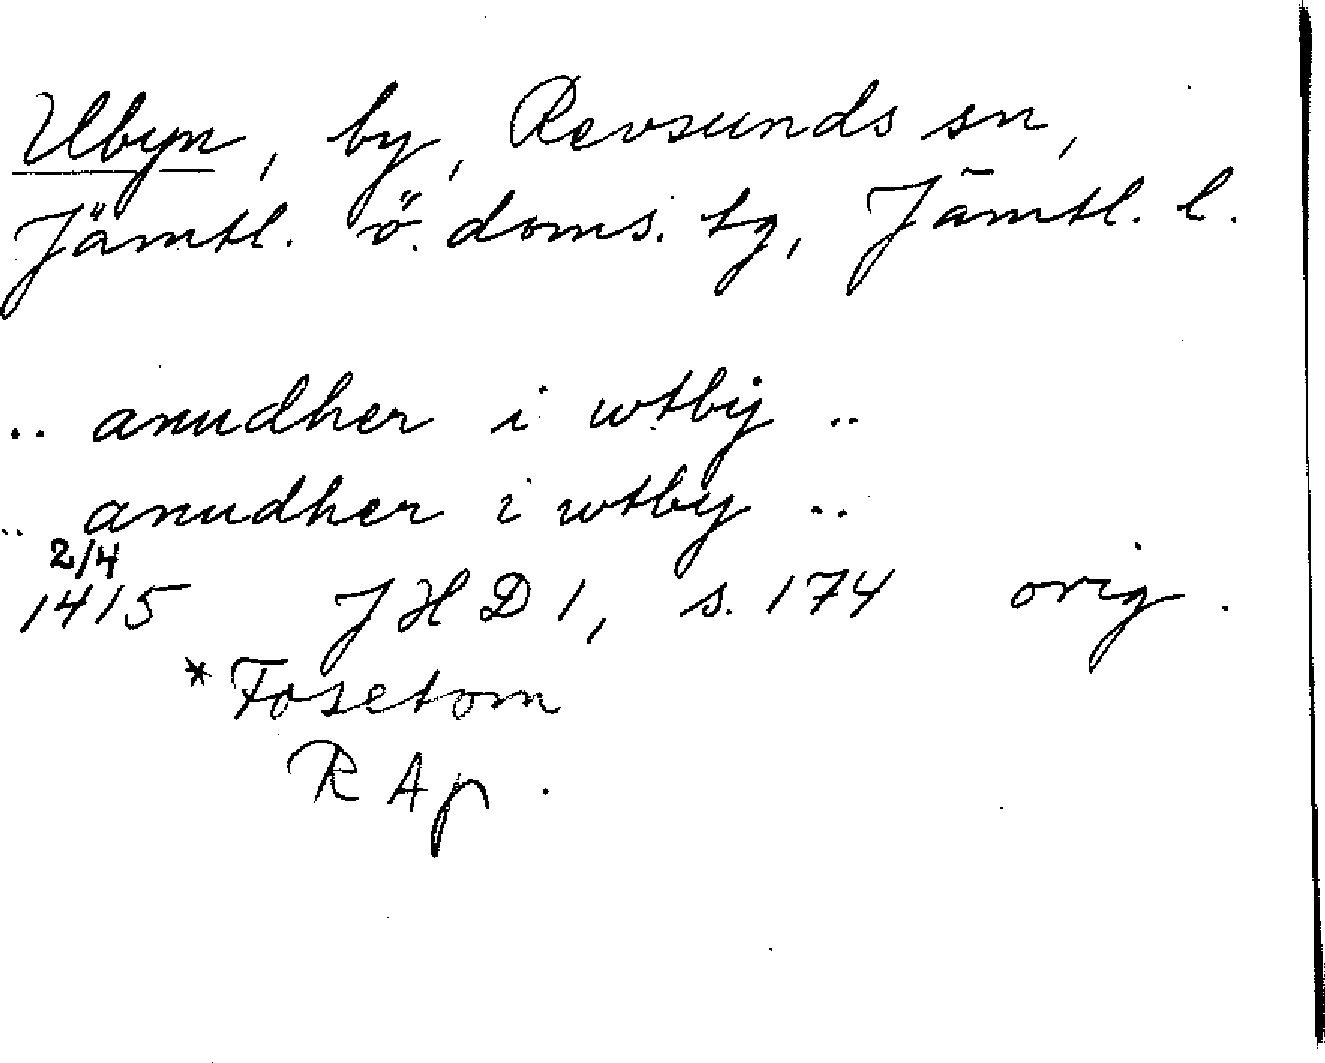 Ubyn, by, Revsunds sn,
Jämtl. ö. doms. tg, Jämtl. l.
.. anudher i wtbÿ ..
.. anudher i wtby ..
2/4
1415 JHD 1, s. 174 orig.
*Fosetom
RAp.